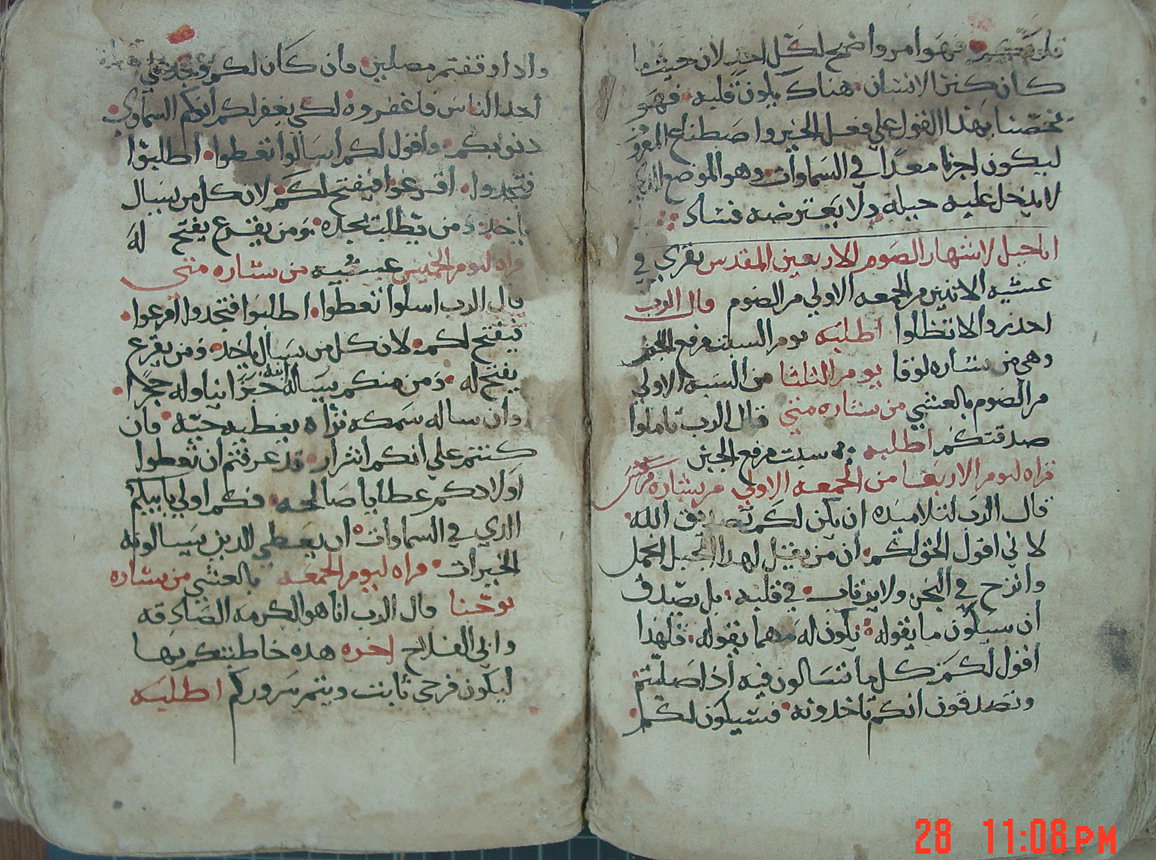 فهو امر واضح لكل احد لان حيث ما
كان كنز الانسان هناك يكون قلبه فهو
يخصنا بهذا القول علي فعل الخير واصطناع المعروف
ليكون اجرنا معدا في السماوات وهو الموضع الذي
لا يدخل عليه حيله ولا يعترضه فساد
لاشتهار الصوم الاربعين المقدس يقري في
عشيه الاثنين من الجمعه الاولي من الصوم قال الرب
احذروا لا تظلوا اطلبه يوم السبت مرفع الجبن
وهي من بشاره لوقا يوم الثلثا من السبه الاولي
من الصوم بالعشي من بشاره متي قال الرب تاملوا
صدقتكم اطلبه في سبت مرفع الجبن
قراه ليوم الاربعا من الجمعه الاولي من بشاره مرقس
قال الرب لتلاميذه ان يكن لكم تصديق الله
لاني اقول الحق لكم ان من يقيل لهدا الجبل انحمل
وانزح في البحر ولا يرتاب في قلبه بل يصدق
ان سيكون ما يقوله تكون له مهما يقوله فلهذا
اقول لكم كل ما تسالون فيه اذا صليتم
وتصدقون انكم تاخذونه فسيكون لكم
واذا وقفتم مصلين فان كان لكم
احد الناس فاغفروه لكي يغفر لكم ابوكم السماوي
دنوبكم واقول لكم اسالوا تعطوا اطلبوا
فتجدوا اقرعوا فيفتح لكم لان كل من يسال
ياخد ومن يطلب يجده ومن يقرع يفتح له
قراه ليوم الخميس عشيه من بشاره متي
قال الرب اسلوا تعطوا اطلبوا فتجدوا اقرعوا
فيفتح لكم لان كل من يسال ياخد ومن يقرع
يفتح له ومن منكم يساله ابنه خبزا يناوله حجرا
وان ساله سمكه تراه يعطيه حيه فان
كنتم علي انكم اشرار قد عرفتم ان تعطوا
اولادكم عطايا صالحه فكم اولي بابيكم
الذي في السماوات ان يعطي الدين يسالونه
الخيرات قراه ليوم الجمعه بالعشي من بشاره
يوحنا قال الرب انا هو الكرمه الصادقه
وابي الفلاح اخره هذه خاطبتكم بها
ليكون فرحي ثابت ويتم سروركم اطلبه
28 11:08 PM